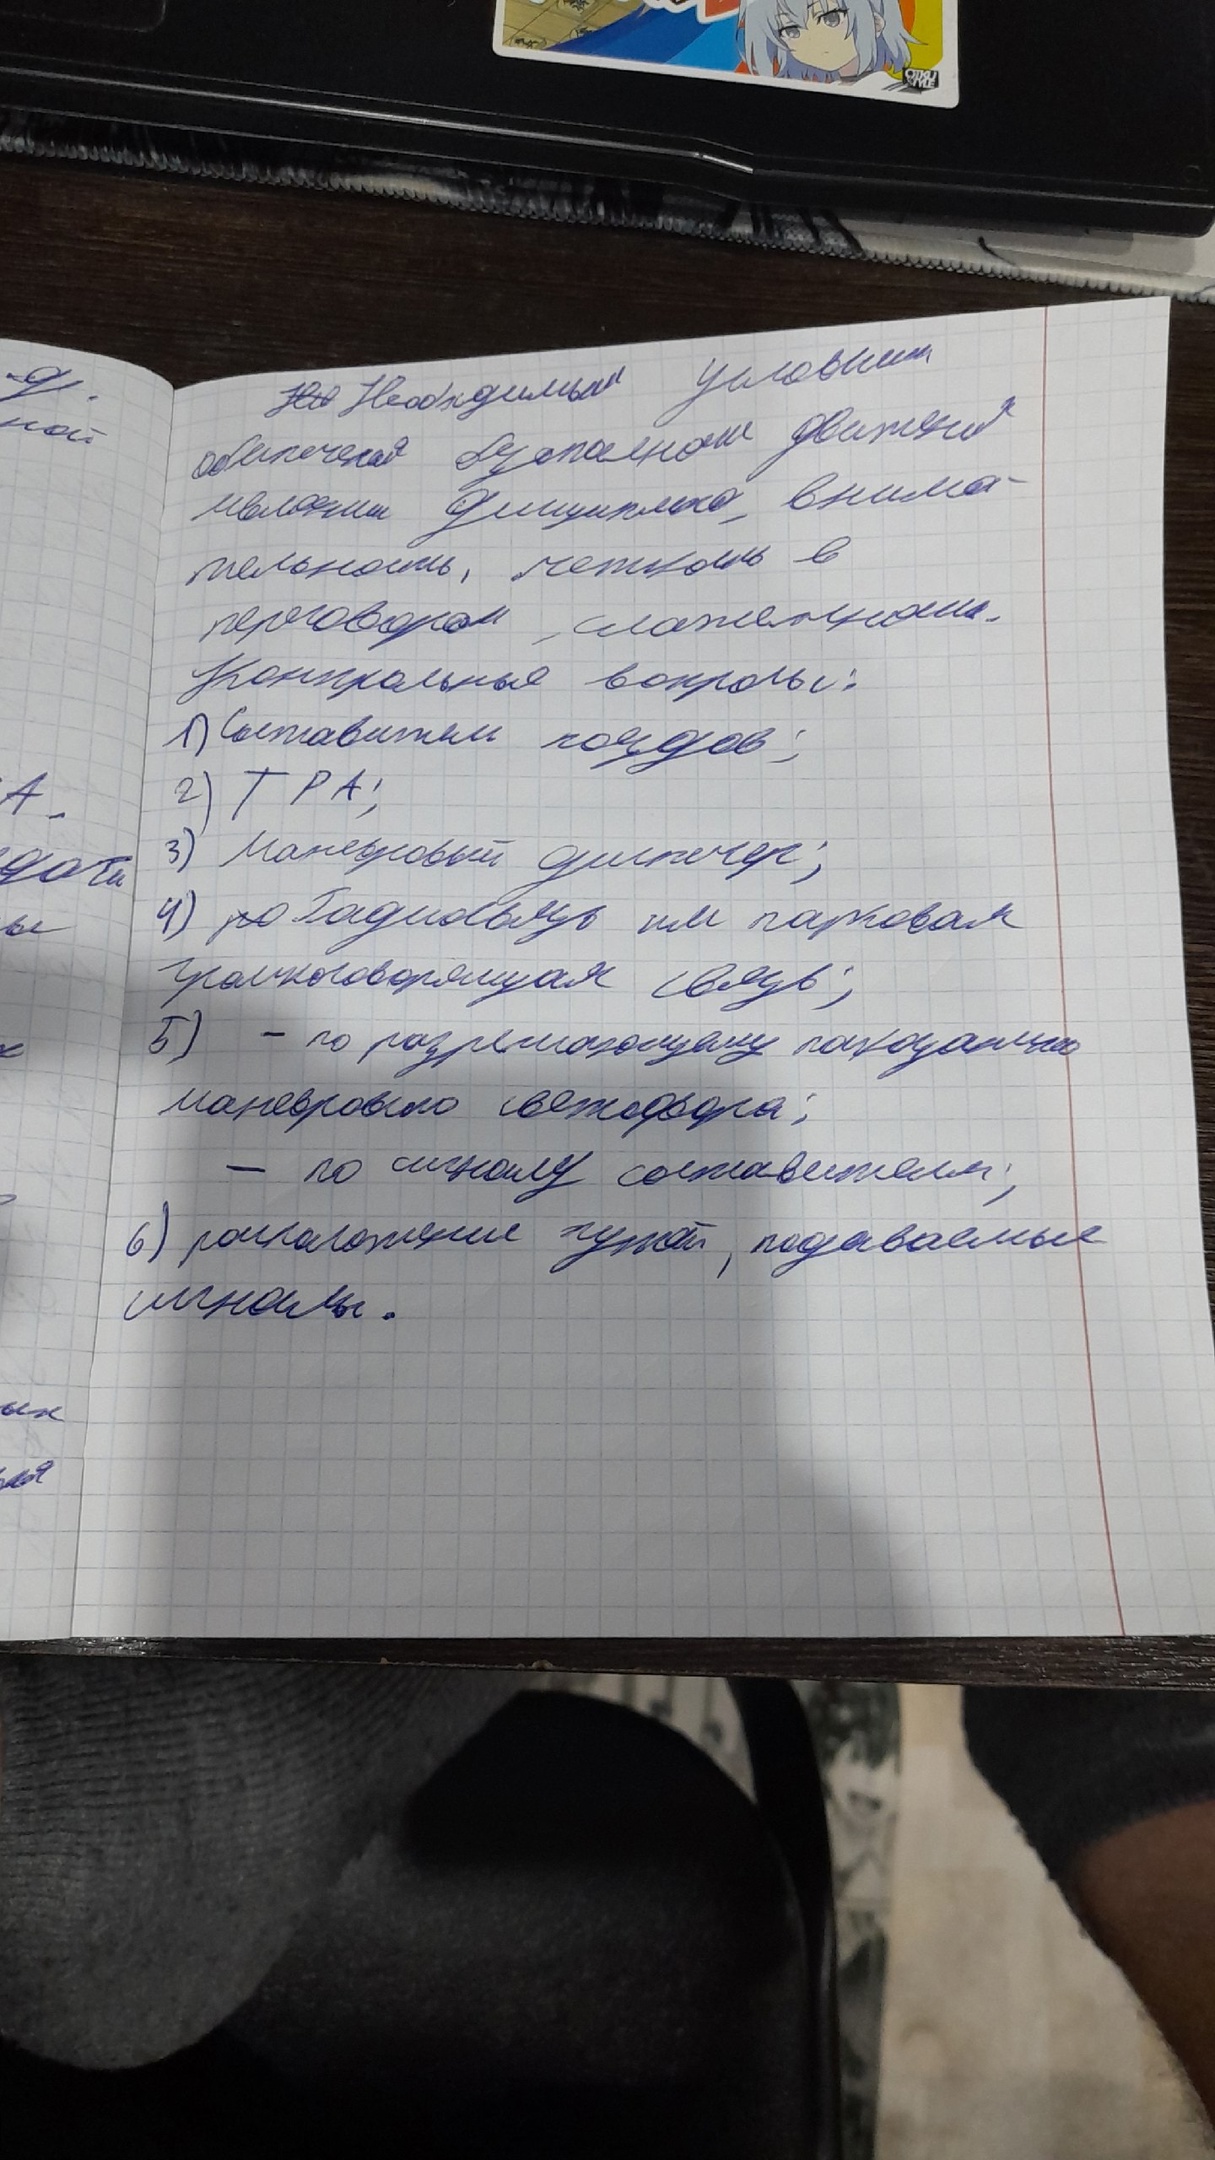 Необходимым условием
обеспечения безопасности движения
являются дисциплина, внима-
тельность, четкость в
переговорах, слаженность.
Контрольные вопросы:
1) Составители поездов;
2) Т Р А;
3) Маневровый диспетчер;
4) Радиосвязь или парковая
громкоговорящая связь;
5) – по разрешающему показанию
маневрового светофора;
– по сигналу составителя;
6) расположение путей, подаваемые
сигналы.